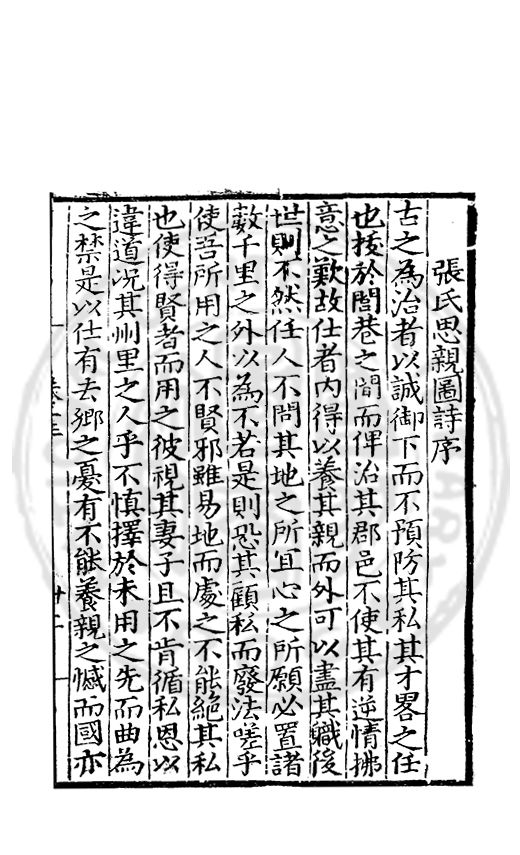 張氏思親圖詩序
古之為治者以誠御下而不預防其私其才畧之任
也拔於閭巷之間而俾治其郡邑不使其有逆情拂
意之歎故仕者内得以養其親而外可以盡其職後
世則不然任人不問其地之所宜心之所願必置諸
數千里之外以為不若是則恐其顧私而廢法嗟乎
使吾所用之人不賢邪雖易地而處之不能絶其私
也使得賢者而用之彼視其妻子且不肯循私恩以
違道况其州里之人乎不慎擇於未用之先而曲為
之禁是以仕有去鄉之憂有不能養親之憾而國亦